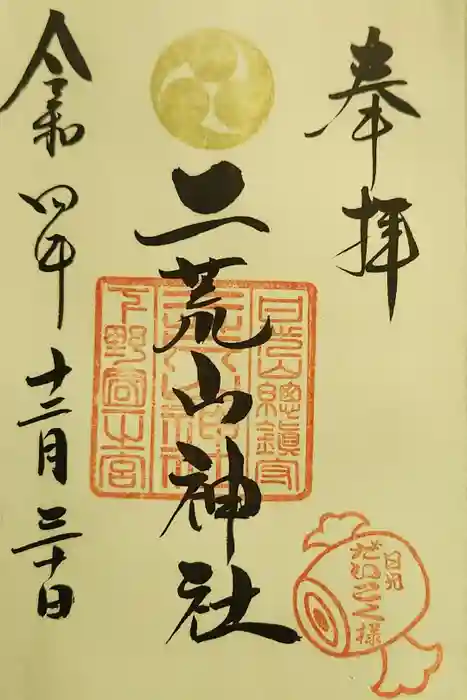 奉拝
二荒山神社
日光山總鎮守
二荒山神社
下野國一之宮
日光
だいこく様
令和四年十二月三十日